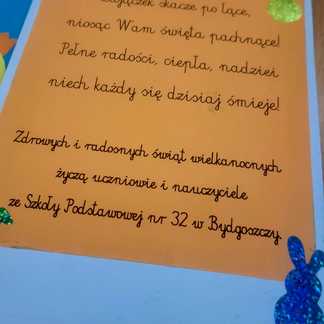 Zajączek skacze po łące,
niosąc Wam święta pachnące!
Pełne radości, ciepła, nadziei
niech każdy się dzisiaj śmieje!
Zdrowych i radosnych świąt wielkanocnych
życzą uczniowie i nauczyciele
ze Szkoły Podstawowej nr 32 w Bydgoszczy